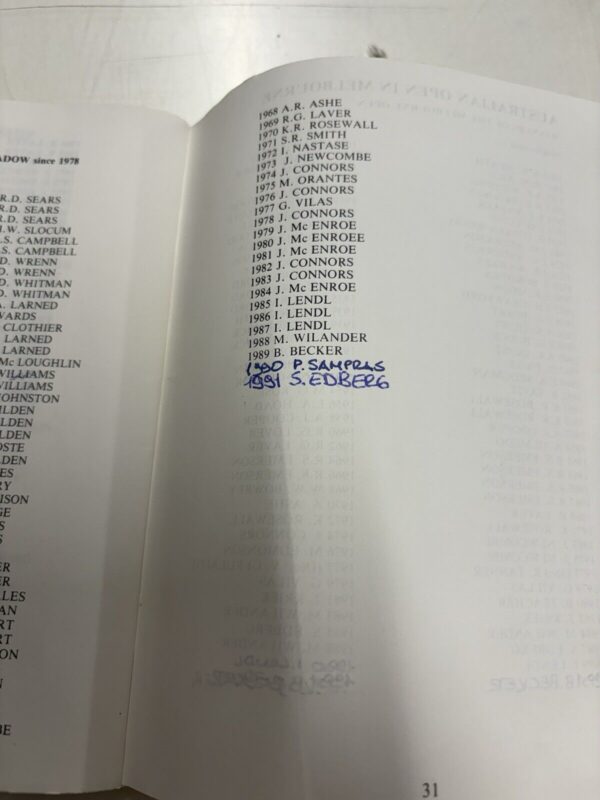 ADOW since 1978
R.D. SEARS
R.D. SEARS
R.D. SEARS
H.W. SLOCUM
S. CAMPBELL
S. CAMPBELL
D. WRENN
D. WRENN
D. WHITMAN
D. WHITMAN
A. LARNED
WARDS
CLOTHIER
LARNED
LARNED
Mc LOUGHLIN
WILLIAMS
WILLIAMS
JOHNSTON
ILDEN
LDEN
LDEN
OSTE
LDEN
ES
RY
ISON
GE
S
S
ER
ER
LES
AN
RT
RT
ON
N
BE
1968 A.R. ASHE
1969 R.G. LAVER
1970 K.R. ROSEWALL
1971 S.R. SMITH
1972 I. NASTASE
1973 J. NEWCOMBE
1974 J. CONNORS
1975 M. ORANTES
1976 J. CONNORS
1977 G. VILAS
1978 J. CONNORS
1979 J. Mc ENROE
1980 J. Mc ENROEE
1981 J. Mc ENROE
1982 J. CONNORS
1983 J. CONNORS
1984 J. Mc ENROE
1985 I. LENDL
1986 I. LENDL
1987 I. LENDL
1988 M. WILANDER
1989 B. BECKER
1990 P. SAMPRAS
1991 S. EDBERG
31